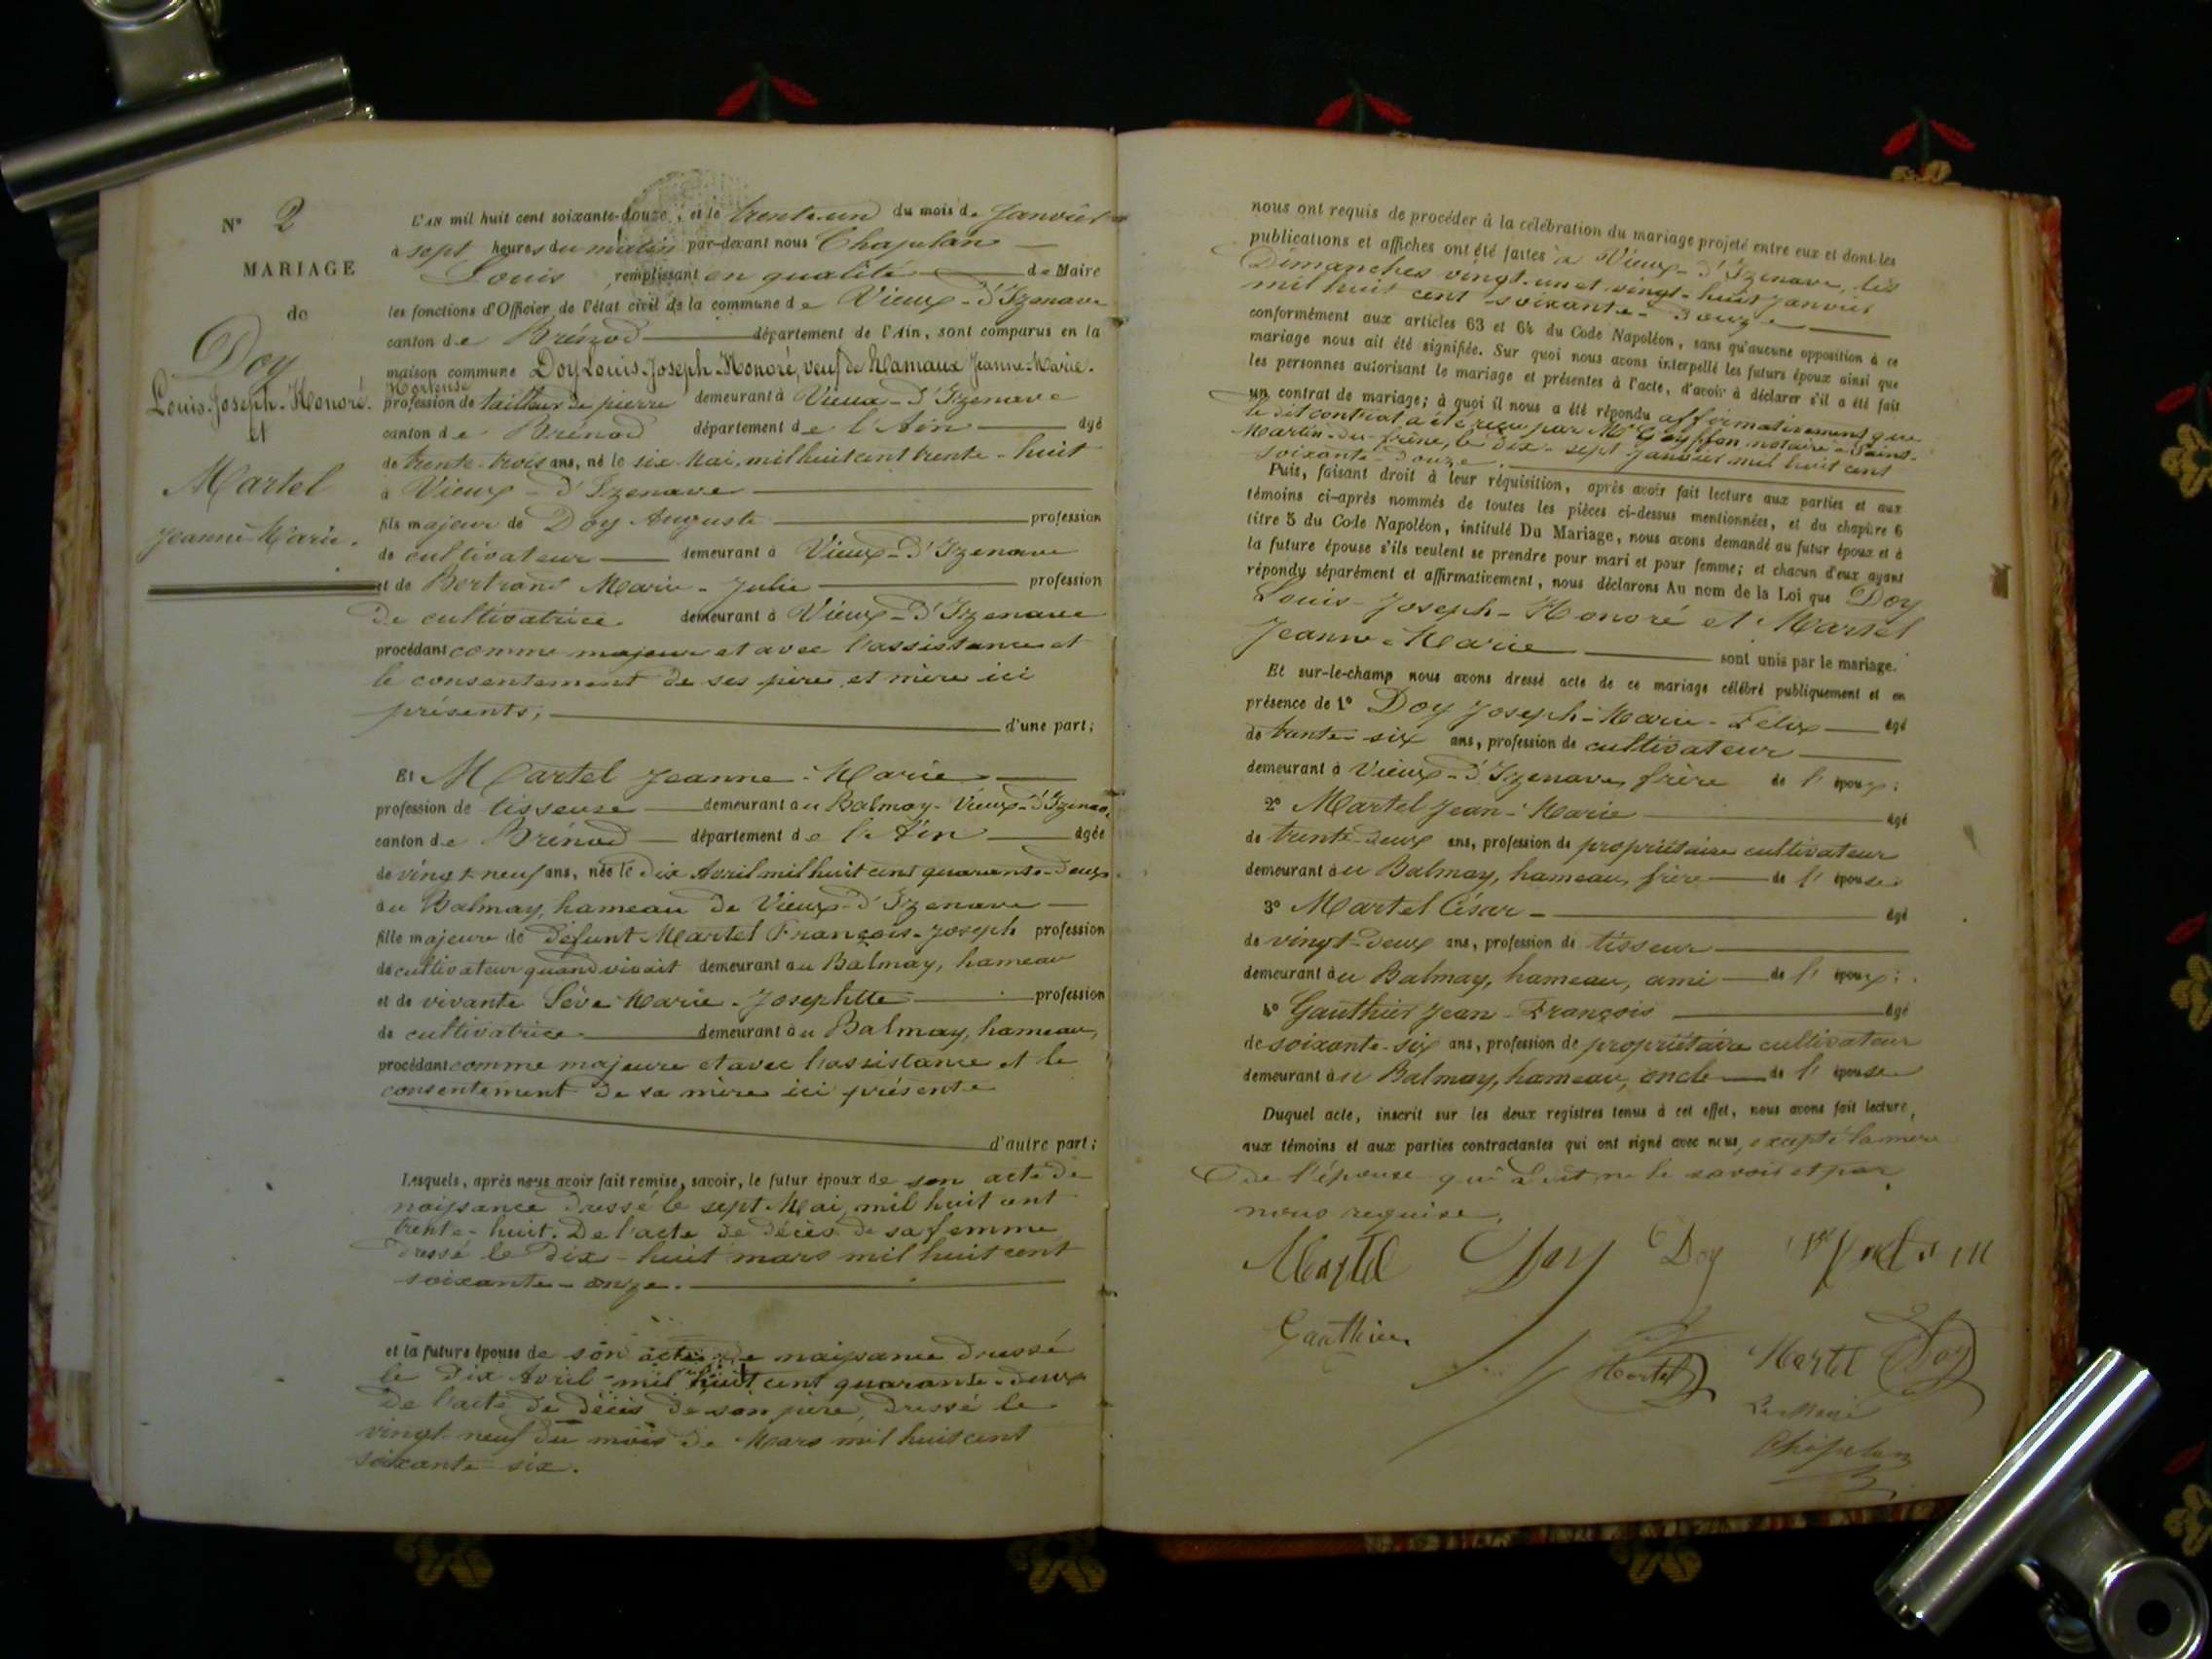 N° 2
MARIAGE
de
Doy
Louis-Joseph-Honoré.
et
Martel
Jeanne-Marie.
L'AN mil huit cent soixante-douze, et le trente-un du mois de Janvier
à sept heures du matin par-devant nous Chapelan
Louis, remplissant en qualité de Maire
les fonctions d'Officier de l'état civil de la commune de Vieux-d'Izenave
canton de Brénod département de l'Ain, sont comparus en la
maison commune Doy Louis-Joseph-Honoré, veuf de Mamaux Jeanne-Marie.
Hortense
profession de tailleur de pierre demeurant à Vieux-d'Izenave
canton de Brénod département de l'Ain âgé
de trente-trois ans, né le six Mai, mil huit cent trente-huit
à Vieux-d'Izenave
fils majeur de Doy Auguste profession
de cultivateur demeurant à Vieux-d'Izenave
et de Bertrand Marie-Julie profession
de cultivatrice demeurant à Vieux-d'Izenave
procédant comme majeur et avec l'assistance et
le consentement de ses père et mère ici
présents; d'une part;
Et Martel Jeanne-Marie
profession de tisseuse demeurant au Balmay-Vieux-d'Izenave
canton de Brénod département de l'Ain âgée
de vingt neuf ans, née le dix Avril mil huit cent quarante-deux
au Balmay, hameau de Vieux-d'Izenave
fille majeure de défunt Martel François-Joseph profession
de cultivateur quand vivait demeurant au Balmay, hameau
et de vivante Sève Marie-Josephtte profession
de cultivatrice demeurant au Balmay, hameau,
procédant comme majeure et avec l'assistance et le
consentement de sa mère ici présente
d'autre part;
Lesquels, après nous avoir fait remise, savoir, le futur époux de son acte de
naissance dressé le sept Mai, mil huit cent
trente-huit. De l'acte de décès de sa femme
dressé le dix-huit mars mil huit cent
soixante-onze.
et la future épouse de son acte de naissance dressé
le dix Avril mil huit cent quarante-deux
De l'acte de décès de son père, dressé le
vingt-neuf du mois de Mars mil huit cent
soixante-six.
nous ont requis de procéder à la célébration du mariage projeté entre eux et dont les
publications et affiches ont été faites à Vieux-d'Izenave, les
Dimanches vingt-un et vingt-huit Janvier
mil huit cent soixante-douze
conformément aux articles 63 et 64 du Code Napoléon, sans qu'aucune opposition à ce
mariage nous ait été signifiée. Sur quoi nous avons interpellé les futurs époux ainsi que
les personnes autorisant le mariage et présentes à l'acte, d'avoir à déclarer s'il a été fait
un contrat de mariage; à quoi il nous a été répondu affirmativement que
le dit contrat a été reçu par Me notaire à Saint-
Martin-du-frêne, le dix-sept Janvier mil huit cent
soixante-douze.
Puis, faisant droit à leur réquisition, après avoir fait lecture aux parties et aux
témoins ci-après nommés de toutes les pièces ci-dessus mentionnées, et du chapitre 6
titre 5 du Code Napoléon, intitulé Du Mariage, nous avons demandé au futur époux et à
la future épouse s'ils veulent se prendre pour mari et pour femme; et chacun d'eux ayant
répondu séparément et affirmativement, nous déclarons Au nom de la Loi que Doy
Louis-Joseph-Honoré et Martel
Jeanne-Marie sont unis par le mariage.
Et sur-le-champ nous avons dressé acte de ce mariage célébré publiquement et en
présence de 1° Doy Joseph-Marie-Félix âgé
de trente-six ans, profession de cultivateur
demeurant à Vieux-d'Izenave, frère de l'époux;
2° Martel Jean-Marie âgé
de trente-deux ans, profession de propriétaire cultivateur
demeurant au Balmay, hameau, frère de l'épouse
3° Martel César âgé
de vingt-deux ans, profession de tisseur
demeurant au Balmay, hameau, ami de l'époux;
4° Gauthier Jean-François âgé
de soixante-six ans, profession de propriétaire cultivateur
demeurant au Balmay, hameau, oncle de l'épouse
Duquel acte, inscrit sur les deux registres tenus à cet effet, nous avons fait lecture,
aux témoins et aux parties contractantes qui ont signé avec nous, excepté la mère
de l'épouse qui a dit ne le savoir et par
nous requise.
Martel Doy Doy
Gauthier Martel Martel Doy
Le Maire
Chapelan